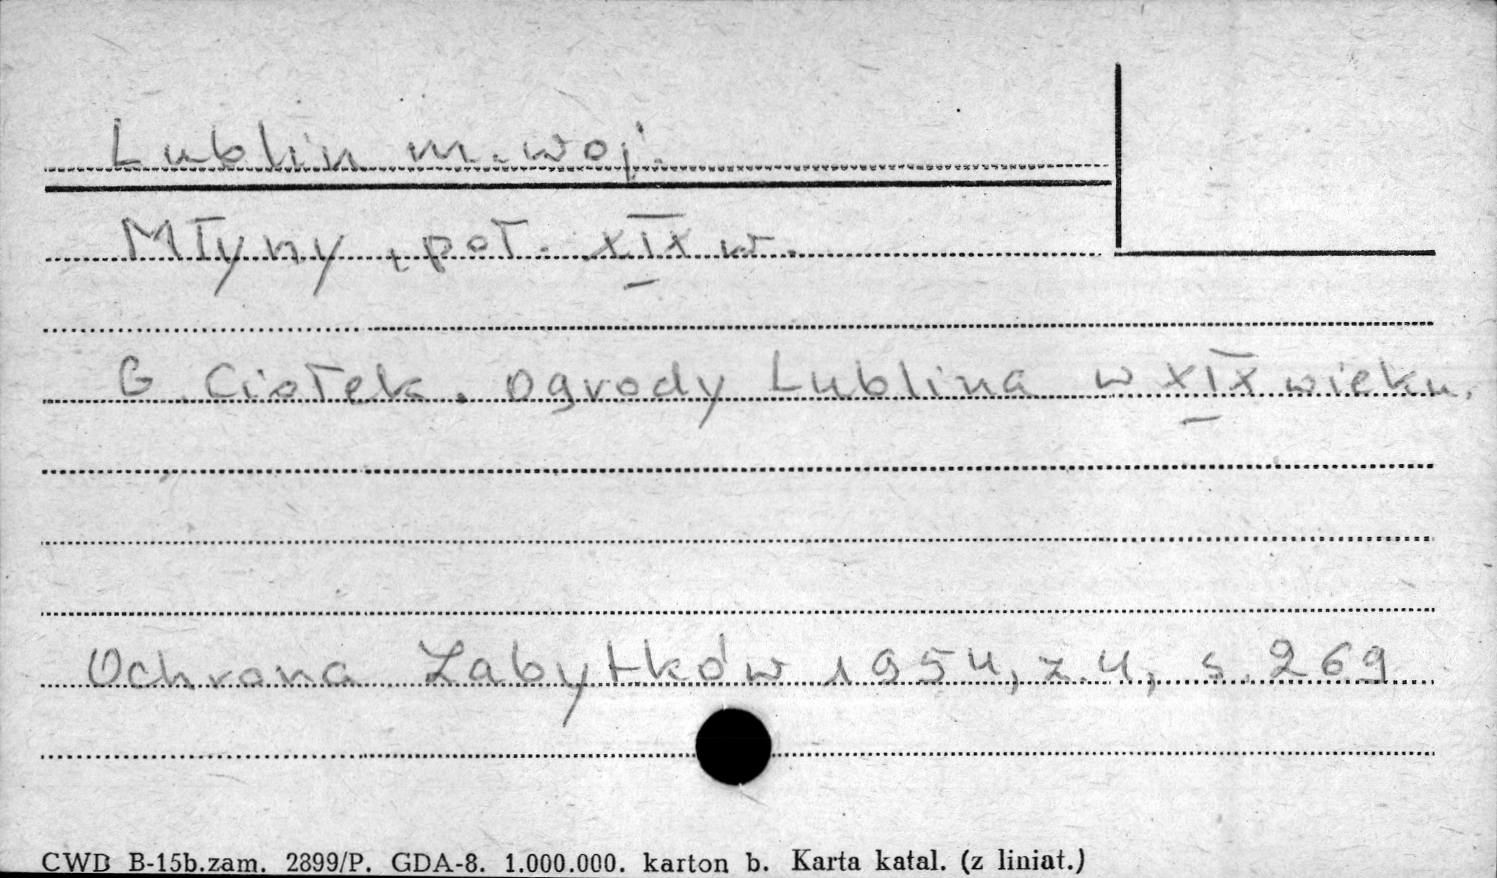 Lublin m. woj.
Młyny, poł. XIX w.
G. Ciołek. Ogrody Lublina w XIX wieku.
Ochrona Zabytków 1954, z. 4, s. 269
CWD B-15b.zam. 2899/P. GDA-8. 1.000.000. karton b. Karta katal. (z liniat.)